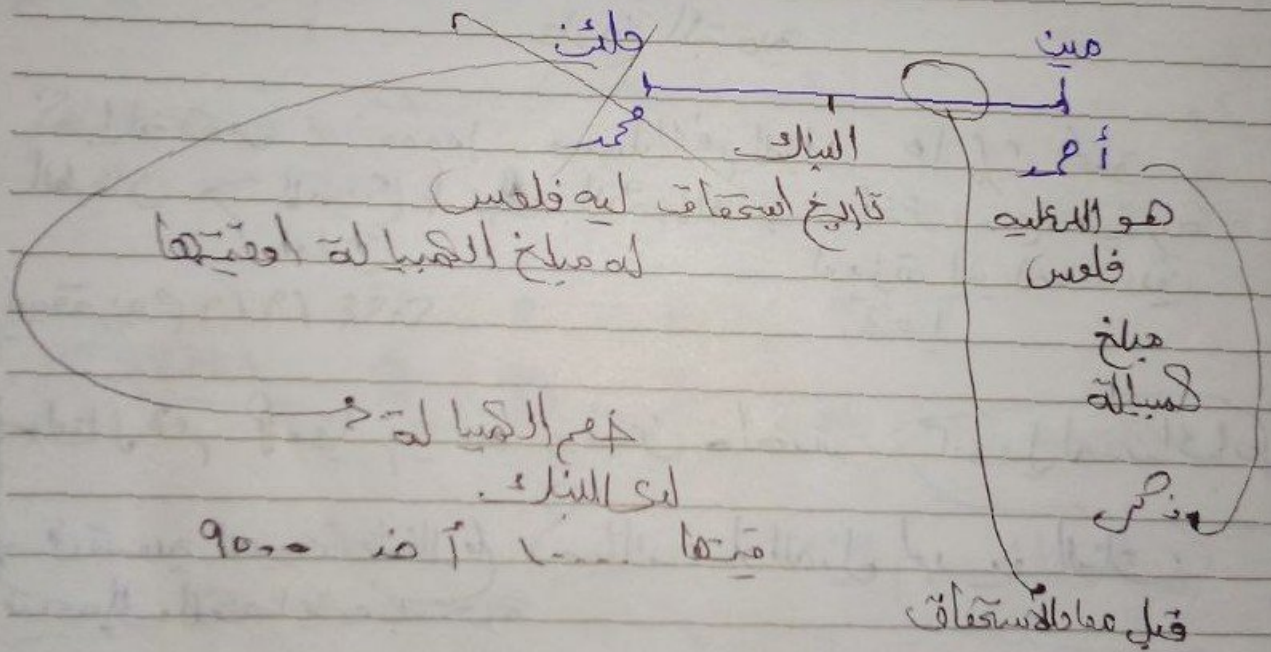 مدين دائن
أحمد البنك محمد
هو اللي عليه فلوس
تاريخ استحقاق ليه فلوس
له مبلغ الكمبيالة او قيمتها
مبلغ
كمبيالة
خصم الكمبيالة
لدى البنك
قيمتها ١٠٠٠٠ أخذ ٩٥٠٠
قبل ميعاد الاستحقاق